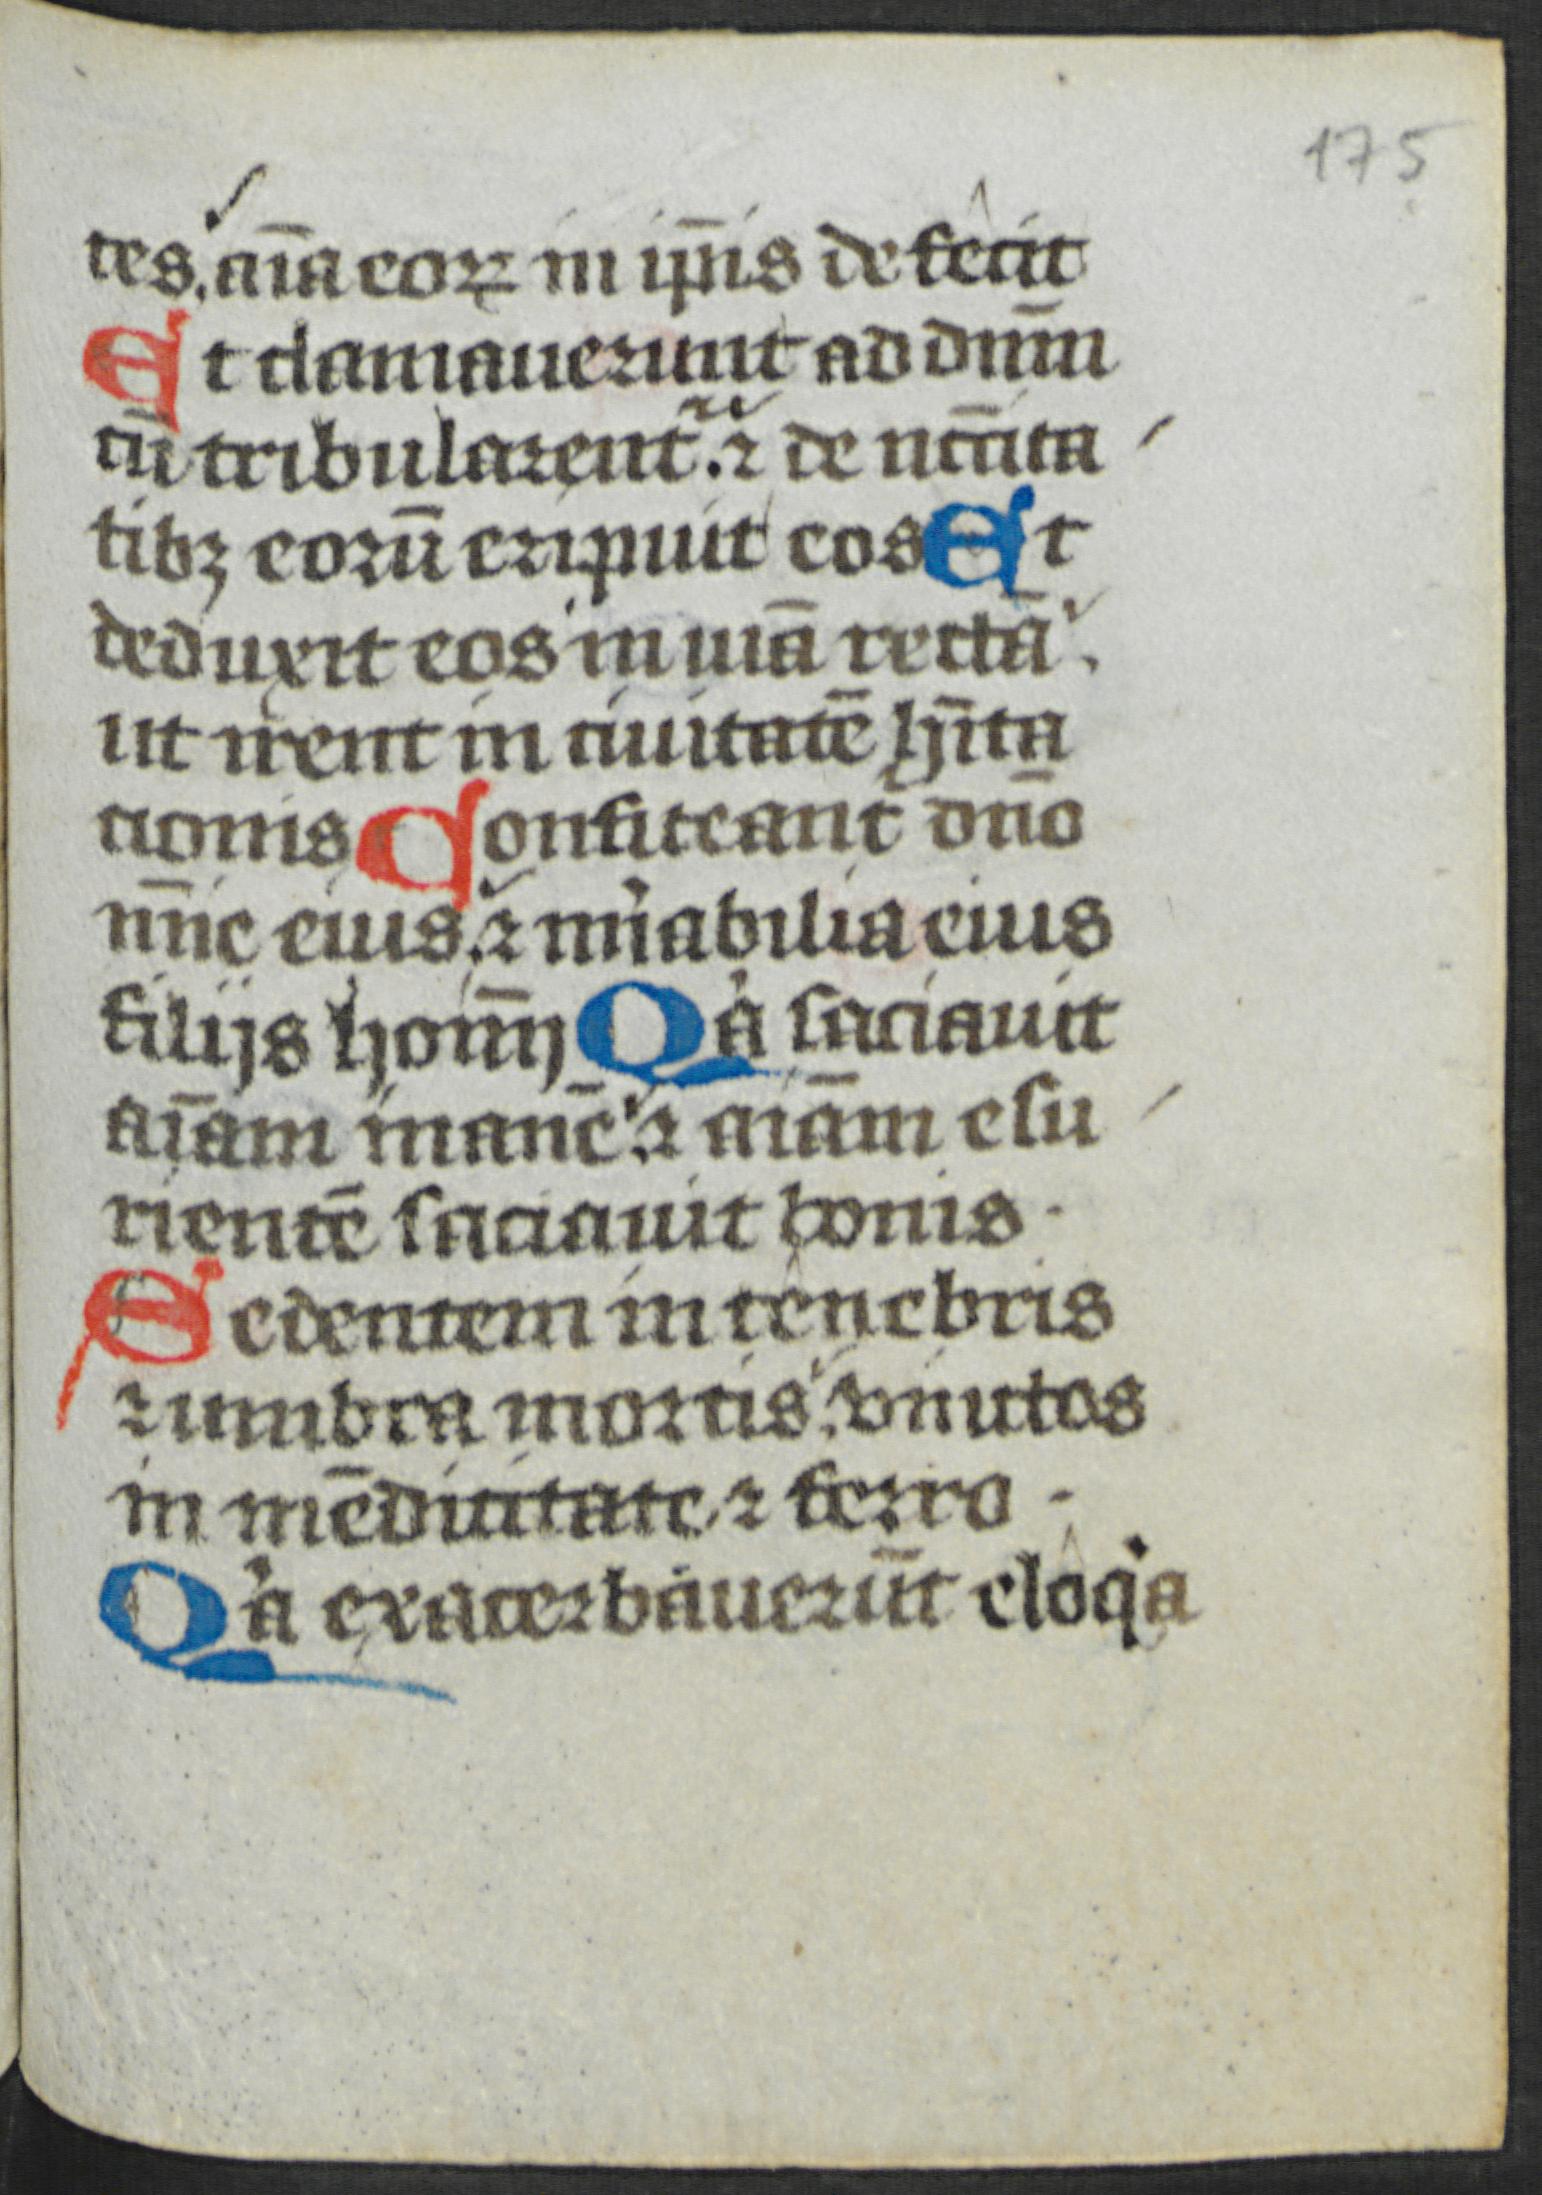 175
tes. aīa eoꝝ in ip̄is defecit
Et clamauerunt ad dnm̄
cū tribularent᷑. ⁊ de nc̄cita
tibꝫ eorū eripuit eos Et
deduxit eos in uiā rectā.
ut irent in ciuitatē hīta
cionis Confiteant᷑ dn̄o
mīe eius. ⁊ mirabilia eius
filijs homīn Qꝛa saciauit
aīam inanē. ⁊ aīam esu
rientē saciauit bonis.
Sedentem in tenebris
⁊ umbra mortis. uinctos
in mēdicitate ⁊ ferro.
Qa exacerbauerūt eloqa